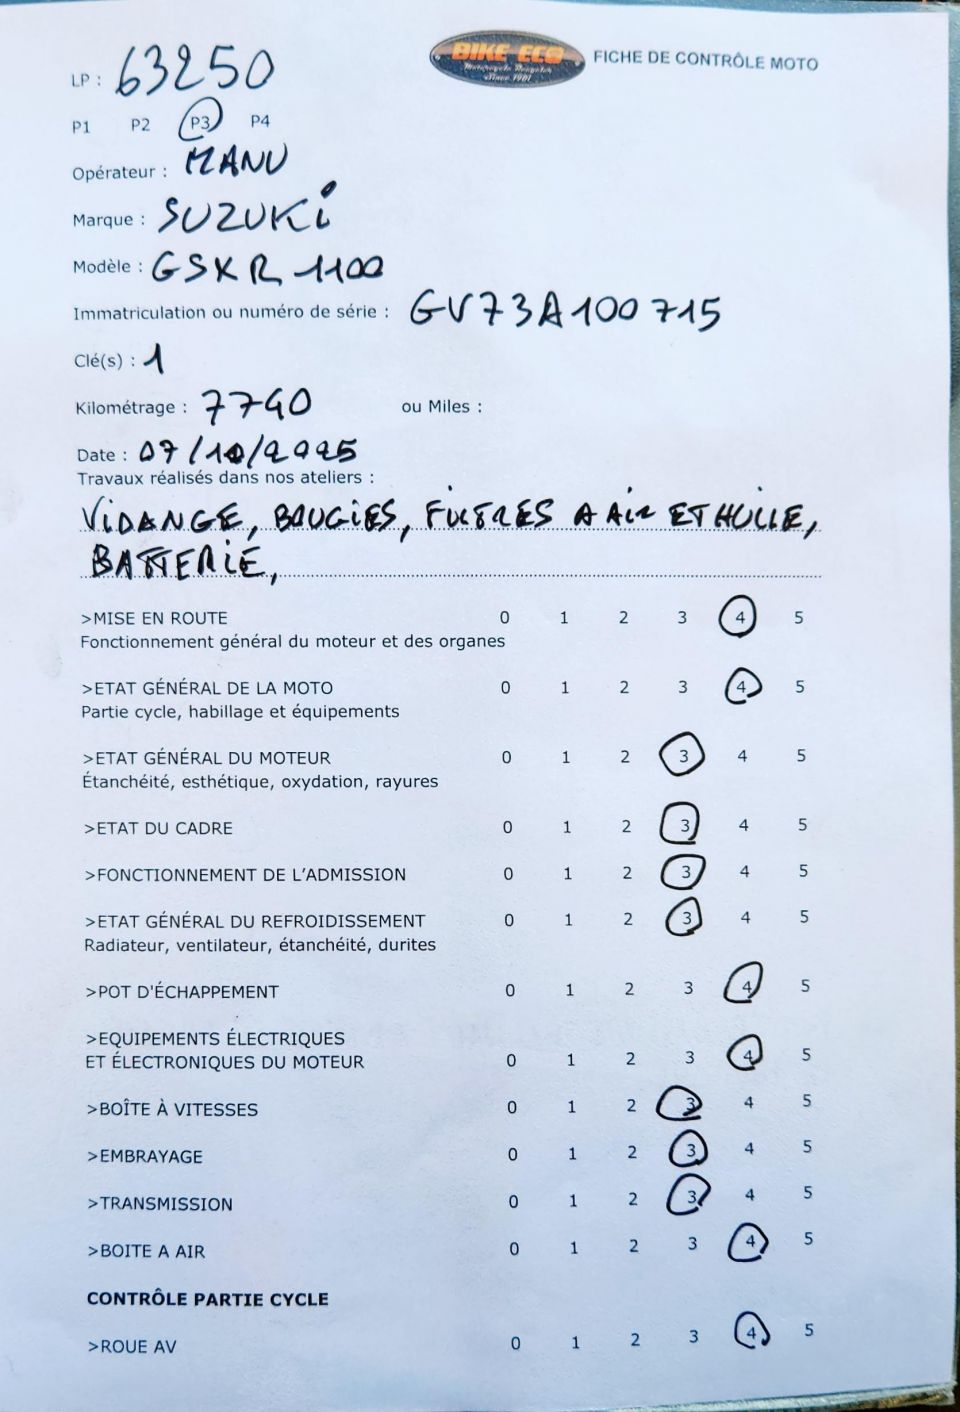 BIKE-ECO
Motorcycle Recycler
Since 1981
FICHE DE CONTRÔLE MOTO
LP : 63250
P1 P2 P3 P4
Opérateur : MANU
Marque : SUZUKi
Modèle : GSXR 1100
Immatriculation ou numéro de série : GV73A100715
Clé(s) : 1
Kilométrage : 7740 ou Miles :
Date : 07/10/2025
Travaux réalisés dans nos ateliers :
ViDANGE, BOUGIES, FILTRES A AiR ET HUILE,
BATTERiE,
>MISE EN ROUTE 0 1 2 3 4 5
Fonctionnement général du moteur et des organes
>ETAT GÉNÉRAL DE LA MOTO 0 1 2 3 4 5
Partie cycle, habillage et équipements
>ETAT GÉNÉRAL DU MOTEUR 0 1 2 3 4 5
Étanchéité, esthétique, oxydation, rayures
>ETAT DU CADRE 0 1 2 3 4 5
>FONCTIONNEMENT DE L'ADMISSION 0 1 2 3 4 5
>ETAT GÉNÉRAL DU REFROIDISSEMENT 0 1 2 3 4 5
Radiateur, ventilateur, étanchéité, durites
>POT D'ÉCHAPPEMENT 0 1 2 3 4 5
>EQUIPEMENTS ÉLECTRIQUES
ET ÉLECTRONIQUES DU MOTEUR 0 1 2 3 4 5
>BOÎTE À VITESSES 0 1 2 3 4 5
>EMBRAYAGE 0 1 2 3 4 5
>TRANSMISSION 0 1 2 3 4 5
>BOITE A AIR 0 1 2 3 4 5
CONTRÔLE PARTIE CYCLE
>ROUE AV 0 1 2 3 4 5